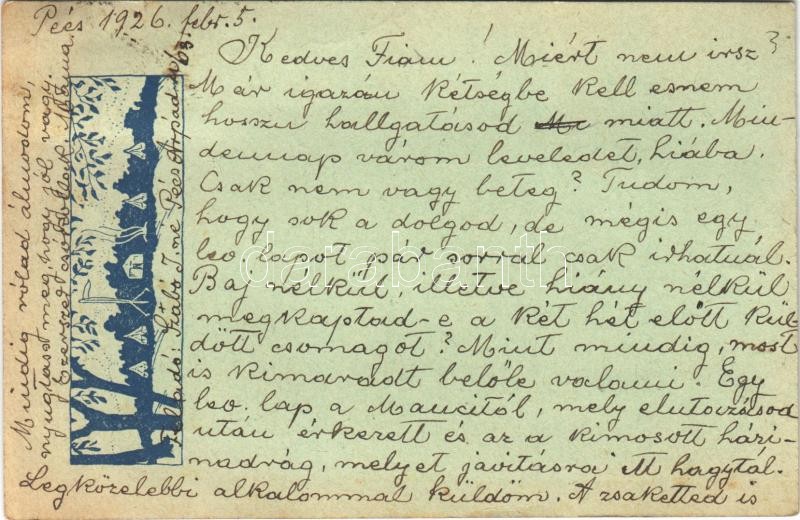 Pécs 1926. febr. 5.
Kedves Fiam! Miért nem irsz?
Már igazán kétségbe kell esnem
hosszu hallgatásod miatt. Min-
dennap várom leveledet, hiába.
Csak nem vagy beteg? Tudom,
hogy sok a dolgod, de mégis egy
lev. lapot pár sorral csak irhatnál.
Baj nélkül, illetve hiány nélkül
megkaptad-e a két hét előtt kül-
dött csomagot? Mint mindig, most
is kimaradt belőle valami. Egy
lev. lap a Mancitól, mely elutazásod
után érkezett és az a kimosott házi-
nadrág, melyet javitásra itt hagytál.
Legközelebbi alkalommal küldöm. A zsaketted is
Mindig rólad álmodom,
nyugtass meg, hogy jól vagy.
Ezerszer csókollak Mama.
Feladó: Szabó I.né Pécs Árpád u. 63.
darabanth